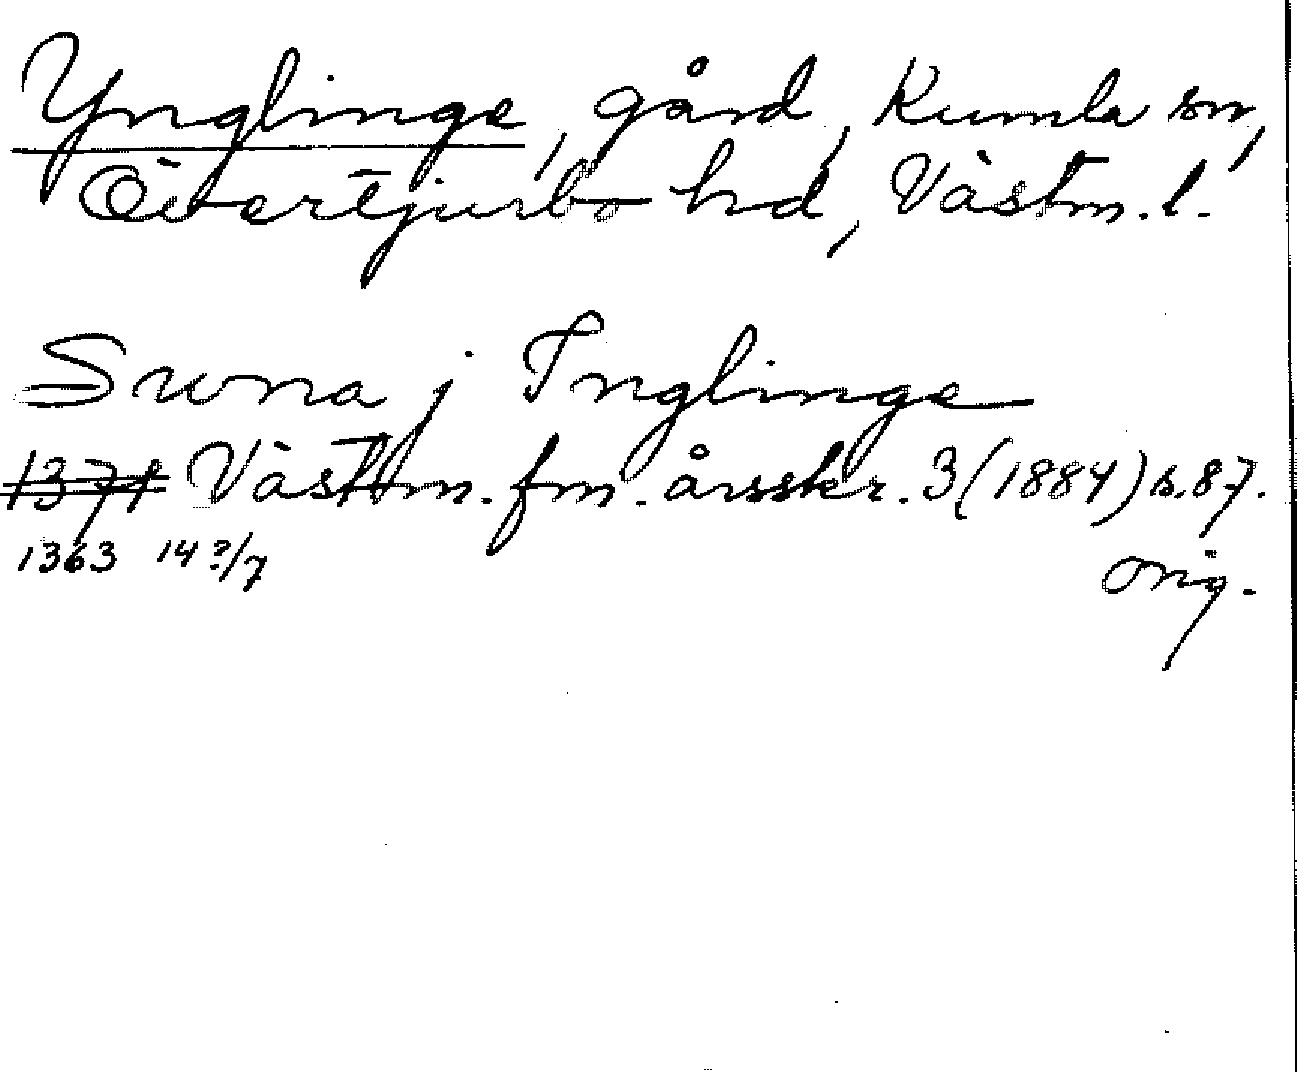 Ynglinge, gård, Kumla sn,
Övertjurbo hd, Västm. l.
Swna j Inglinge
1371 Västm. fm. årsskr. 3 (1884) s. 87.
1363 14 ?/7
orig.